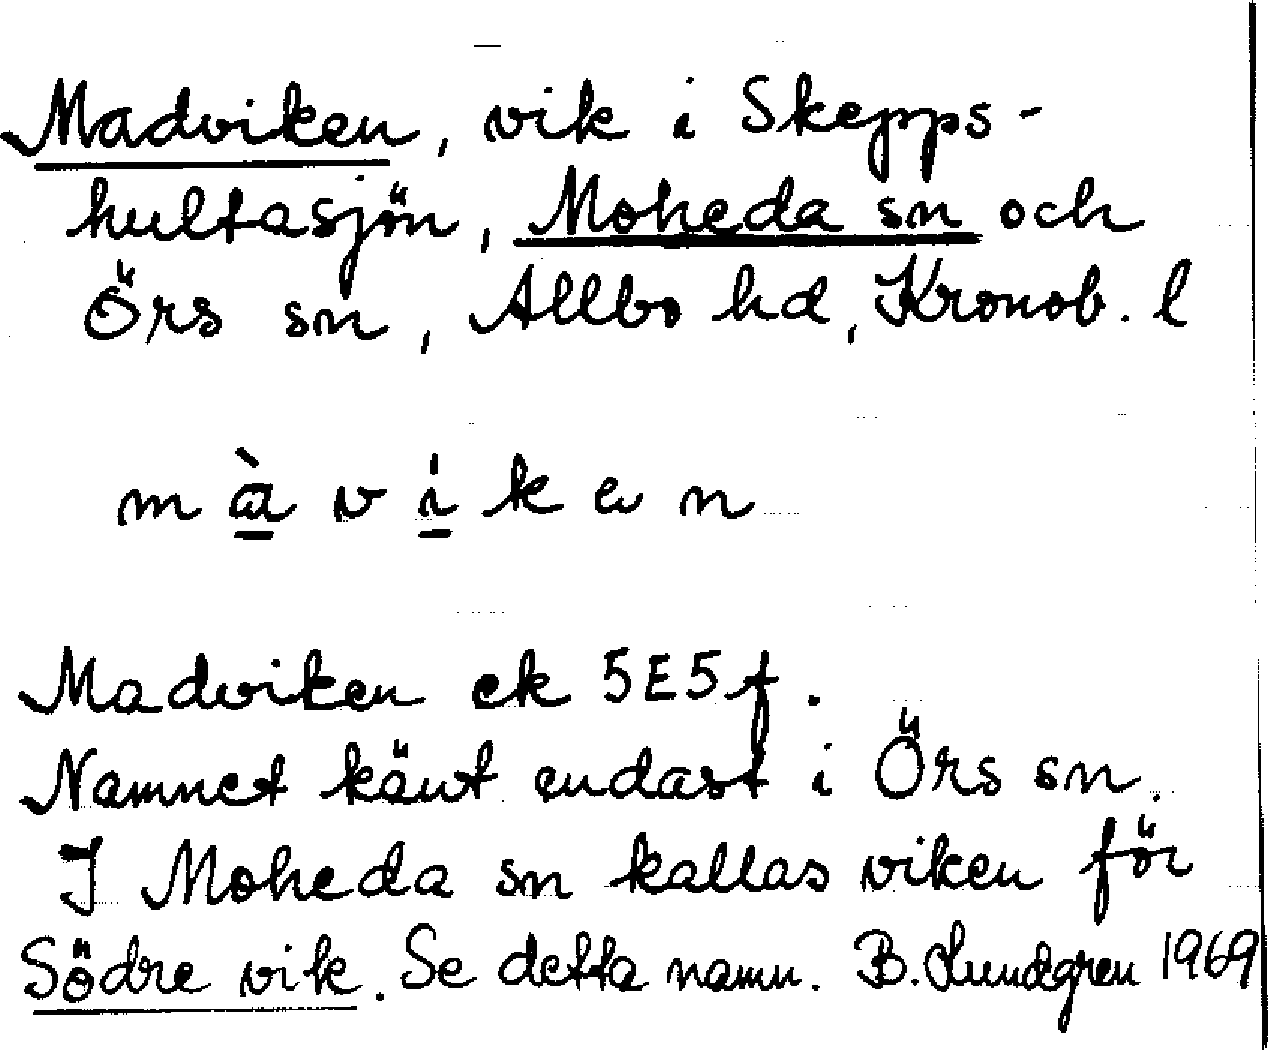 Madviken, vik i Skepps-
hultasjön, Moheda sn och
Örs sn, Allbo hd, Kronob. l
m à v í k e n
Madviken ek 5E5f.
Namnet känt endast i Örs sn.
I Moheda sn kallas viken för
Södre vik. Se detta namn. B. Lundgren 1969